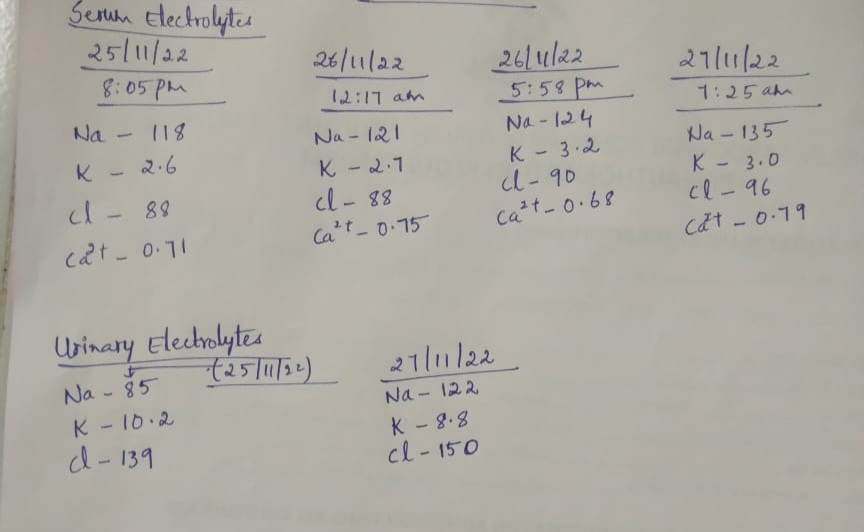 Serum Electrolytes
25/11/22
8:05 pm
Na - 118
K - 2.6
Cl - 88
Ca2+ - 0.71
26/11/22
12:17 am
Na - 121
K - 2.7
Cl - 88
Ca2+ - 0.75
26/11/22
5:58 pm
Na - 124
K - 3.2
Cl - 90
Ca2+ - 0.68
27/11/22
7:25 am
Na - 135
K - 3.0
Cl - 96
Ca2+ - 0.79
Urinary Electrolytes
(25/11/22)
Na - 85
K - 10.2
Cl - 139
27/11/22
Na - 122
K - 8.8
Cl - 150